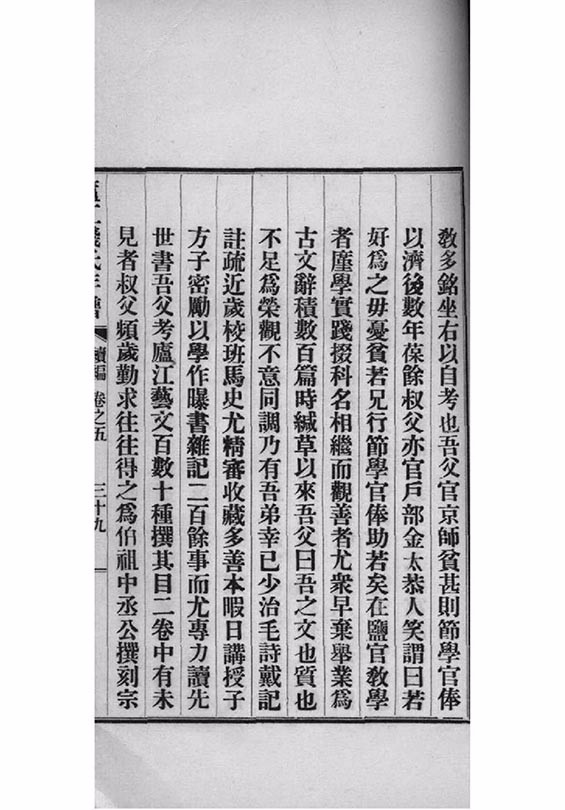 教多銘坐右以自考也吾父官京師貧甚則節學官俸
以濟後數年葆餘叔父亦官戶部金太恭人笑謂曰若
好爲之毋憂貧若兄行節學官俸助若矣在鹽官敎學
者廑學實踐掇科名相繼而觀善者尤衆早棄舉業爲
古文辭積數百篇時緘草以來吾父曰吾之文也質也
不足爲榮觀不意同調乃有吾弟幸已少治毛詩戴記
註疏近歲校班馬史尤精審收藏多善本暇日講授子
方子密勵以學作曝書雜記二百餘事而尤專力讀先
世書吾父考廬江藝文百數十種撰其目二卷中有未
見者叔父頻歲勤求往往得之爲伯祖中丞公撰刻宗
錢氏年譜 續編 卷之五 三十九